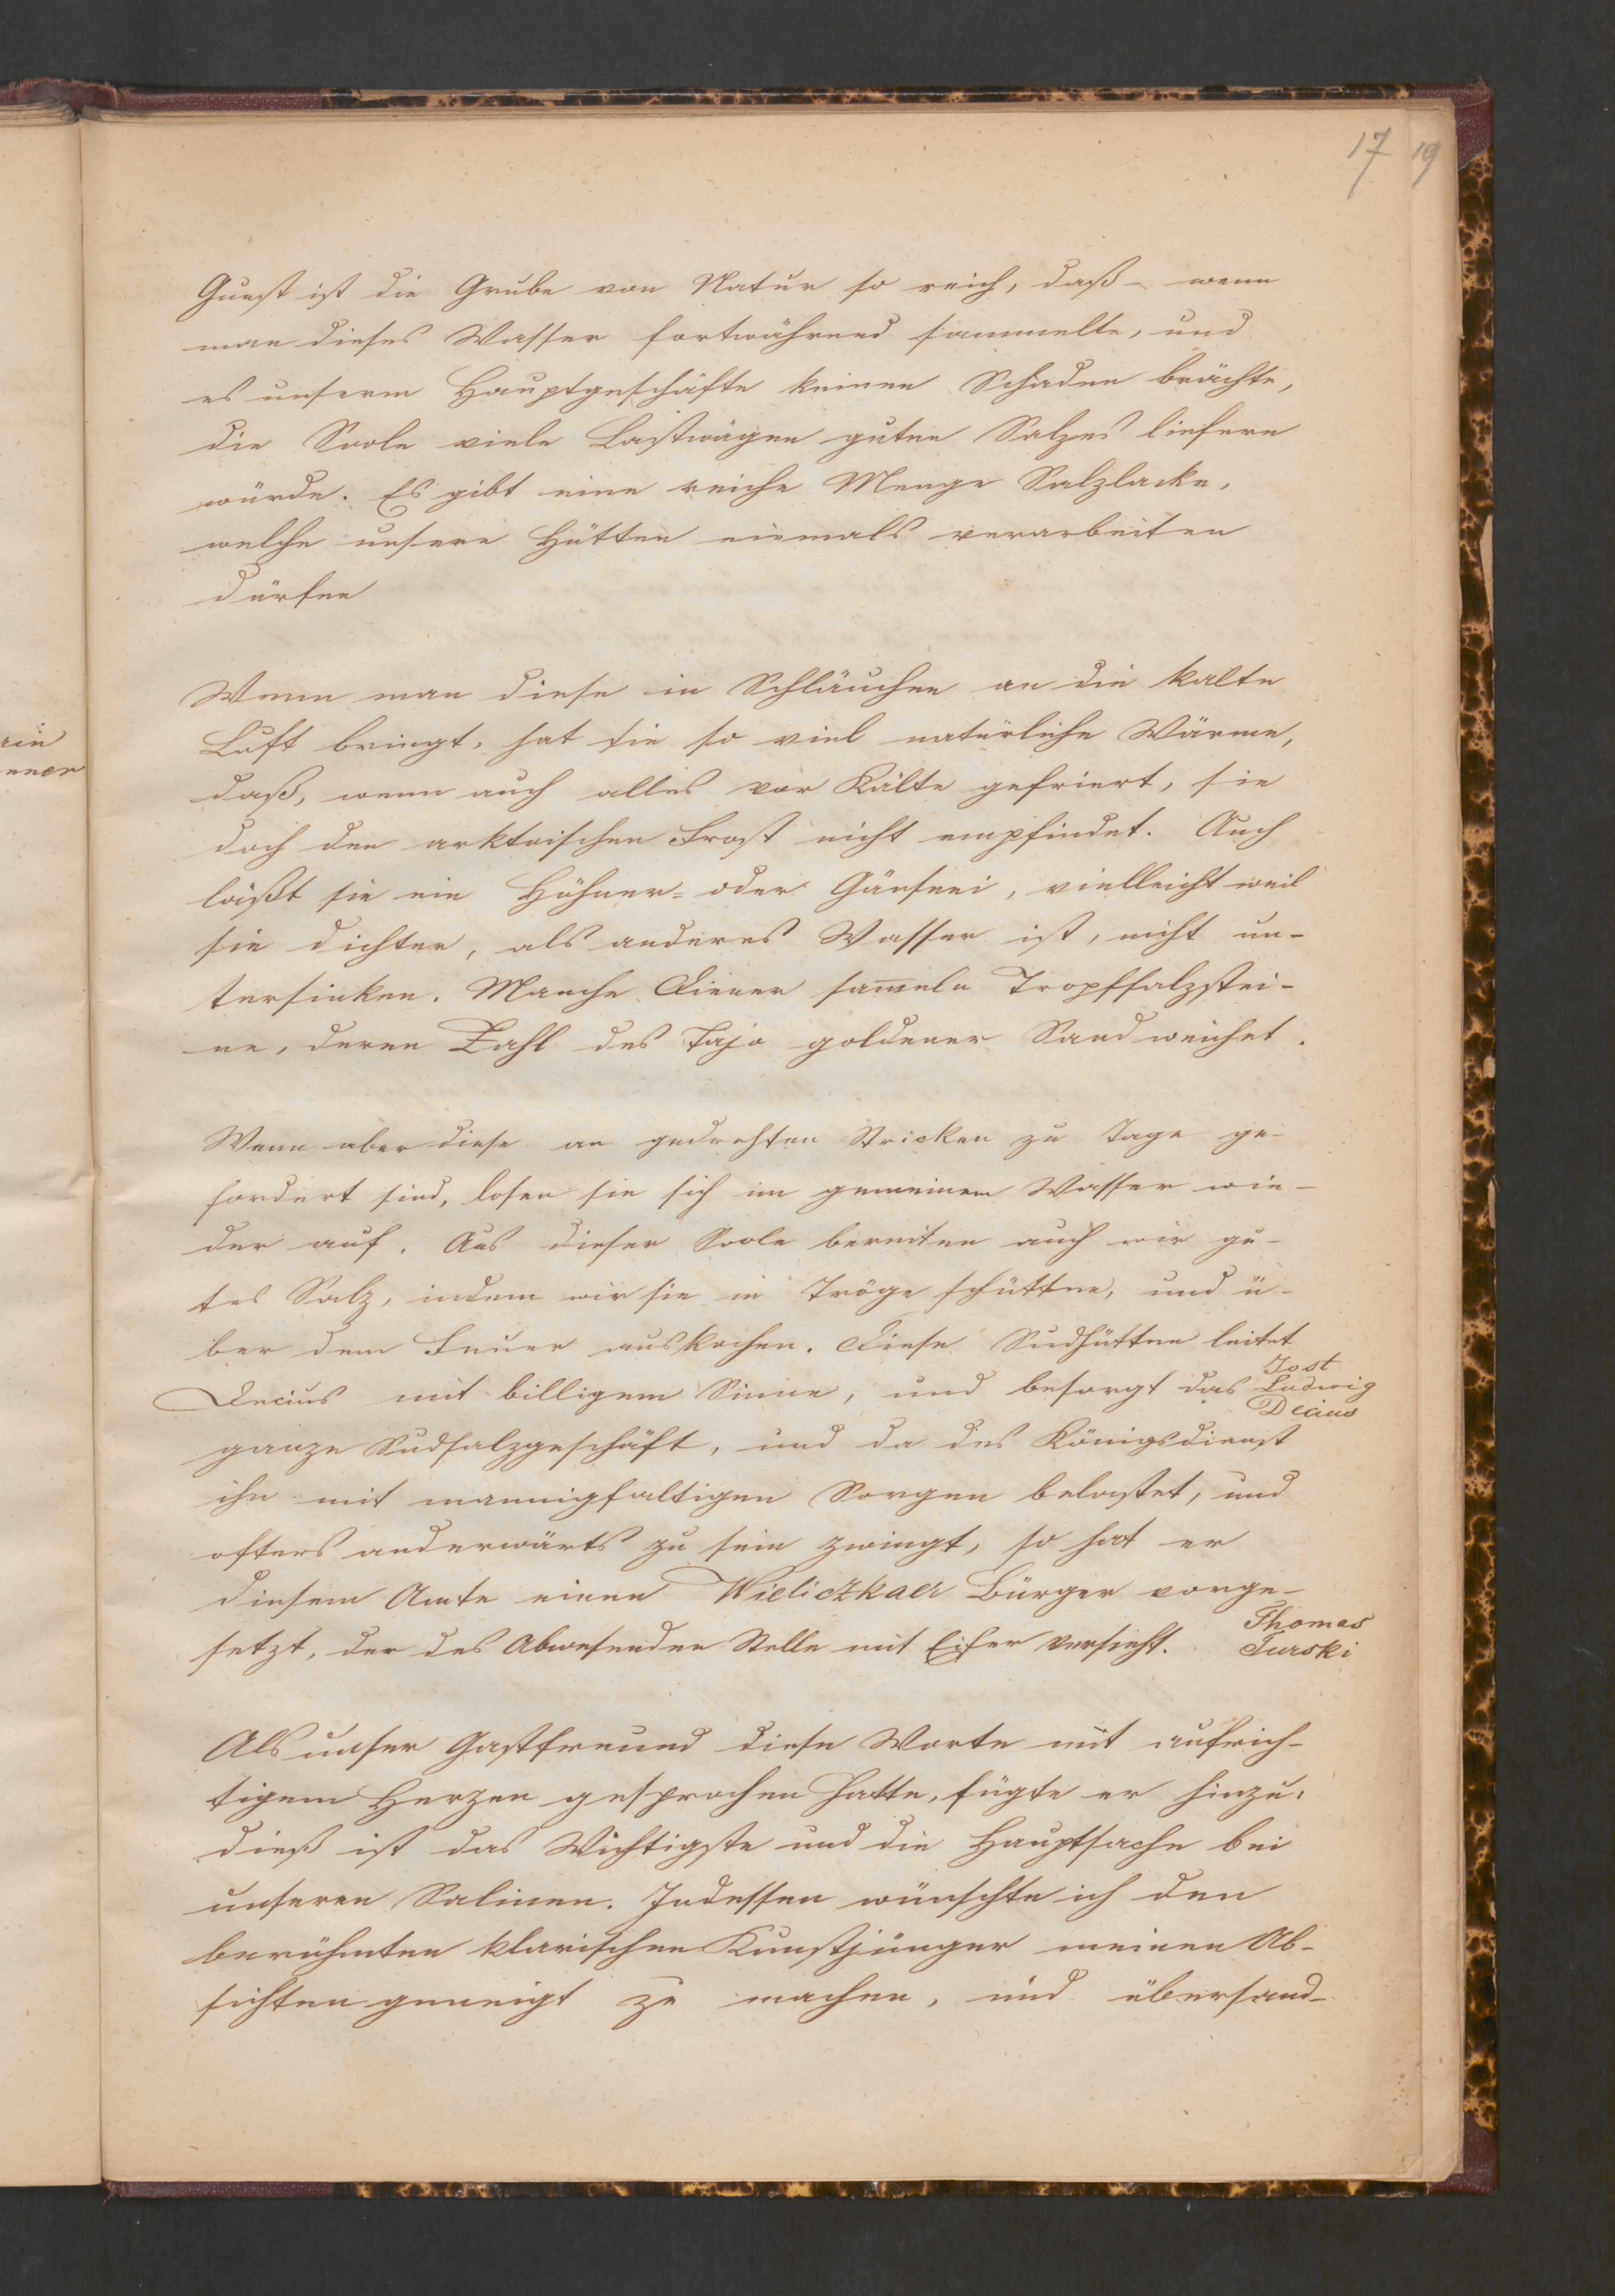 17 19
Gunst ist die Grube von Natur so reich, daß – wenn
man dieses Wasser fortwährend sammelte, und
es unserm Hauptgeschäfte keinen Schaden brächte,
die Soole viele Lastwägen guten Salzes liefern
würde. Es gibt eine reiche Menge Salzlacke,
welche unsere Hütten niemals verarbeiten
dürfen
Wenn man diese in Schläuchen an die kalte
Luft bringt, hat sie so viel natürliche Wärme,
daß, wenn auch alles vor Kälte gefriert, sie
doch den arktoischen Frost nicht empfindet. Auch
läßt sie ein Hühner= oder Gänseei, vielleicht weil
sie dichter, als anderes Wasser ist, nicht un-
tersinken. Manche Diener sam̅eln Tropfsalzstei-
ne, deren Zahl des Tajo goldener Sand weichet.
Wenn aber diese an gedrehten Stricken zu Tage ge-
fordert sind, losen sie sich im gemeinem Wasser wie-
der auf. Aus dieser Soole bereiten auch wir gu-
tes Salz, indem wir sie in Tröge schütten, und ü-
ber dem Feuer auskochen. Diese Sudhütten leitet
Decius mit billigem Sinne, und besorgt das
Jost
Ludwig
Decius
ganze Sudsalzgeschäft, und da des Königsdienst
ihn mit mannigfaltigen Sorgen belastet, und
ofters anderwärts zu sein zwingt, so hat er
diesem Amte einen Wieliczkaer Bürger vorge-
setzt, der des Abwesenden Stelle mit Eifer versieht.
Thomas
Turski
Als unser Gastfreund diese Worte mit aufrich-
tigem Herzen gesprochen hatte, fügte er hinzu:
dieß ist das Wichtigste und die Hauptsache bei
unseren Salinen. Indessen wünschte ich den
berühmten klarischen Kunstjünger meinen Ab-
sichten geneigt zu machen, und übersand-
rin
nner